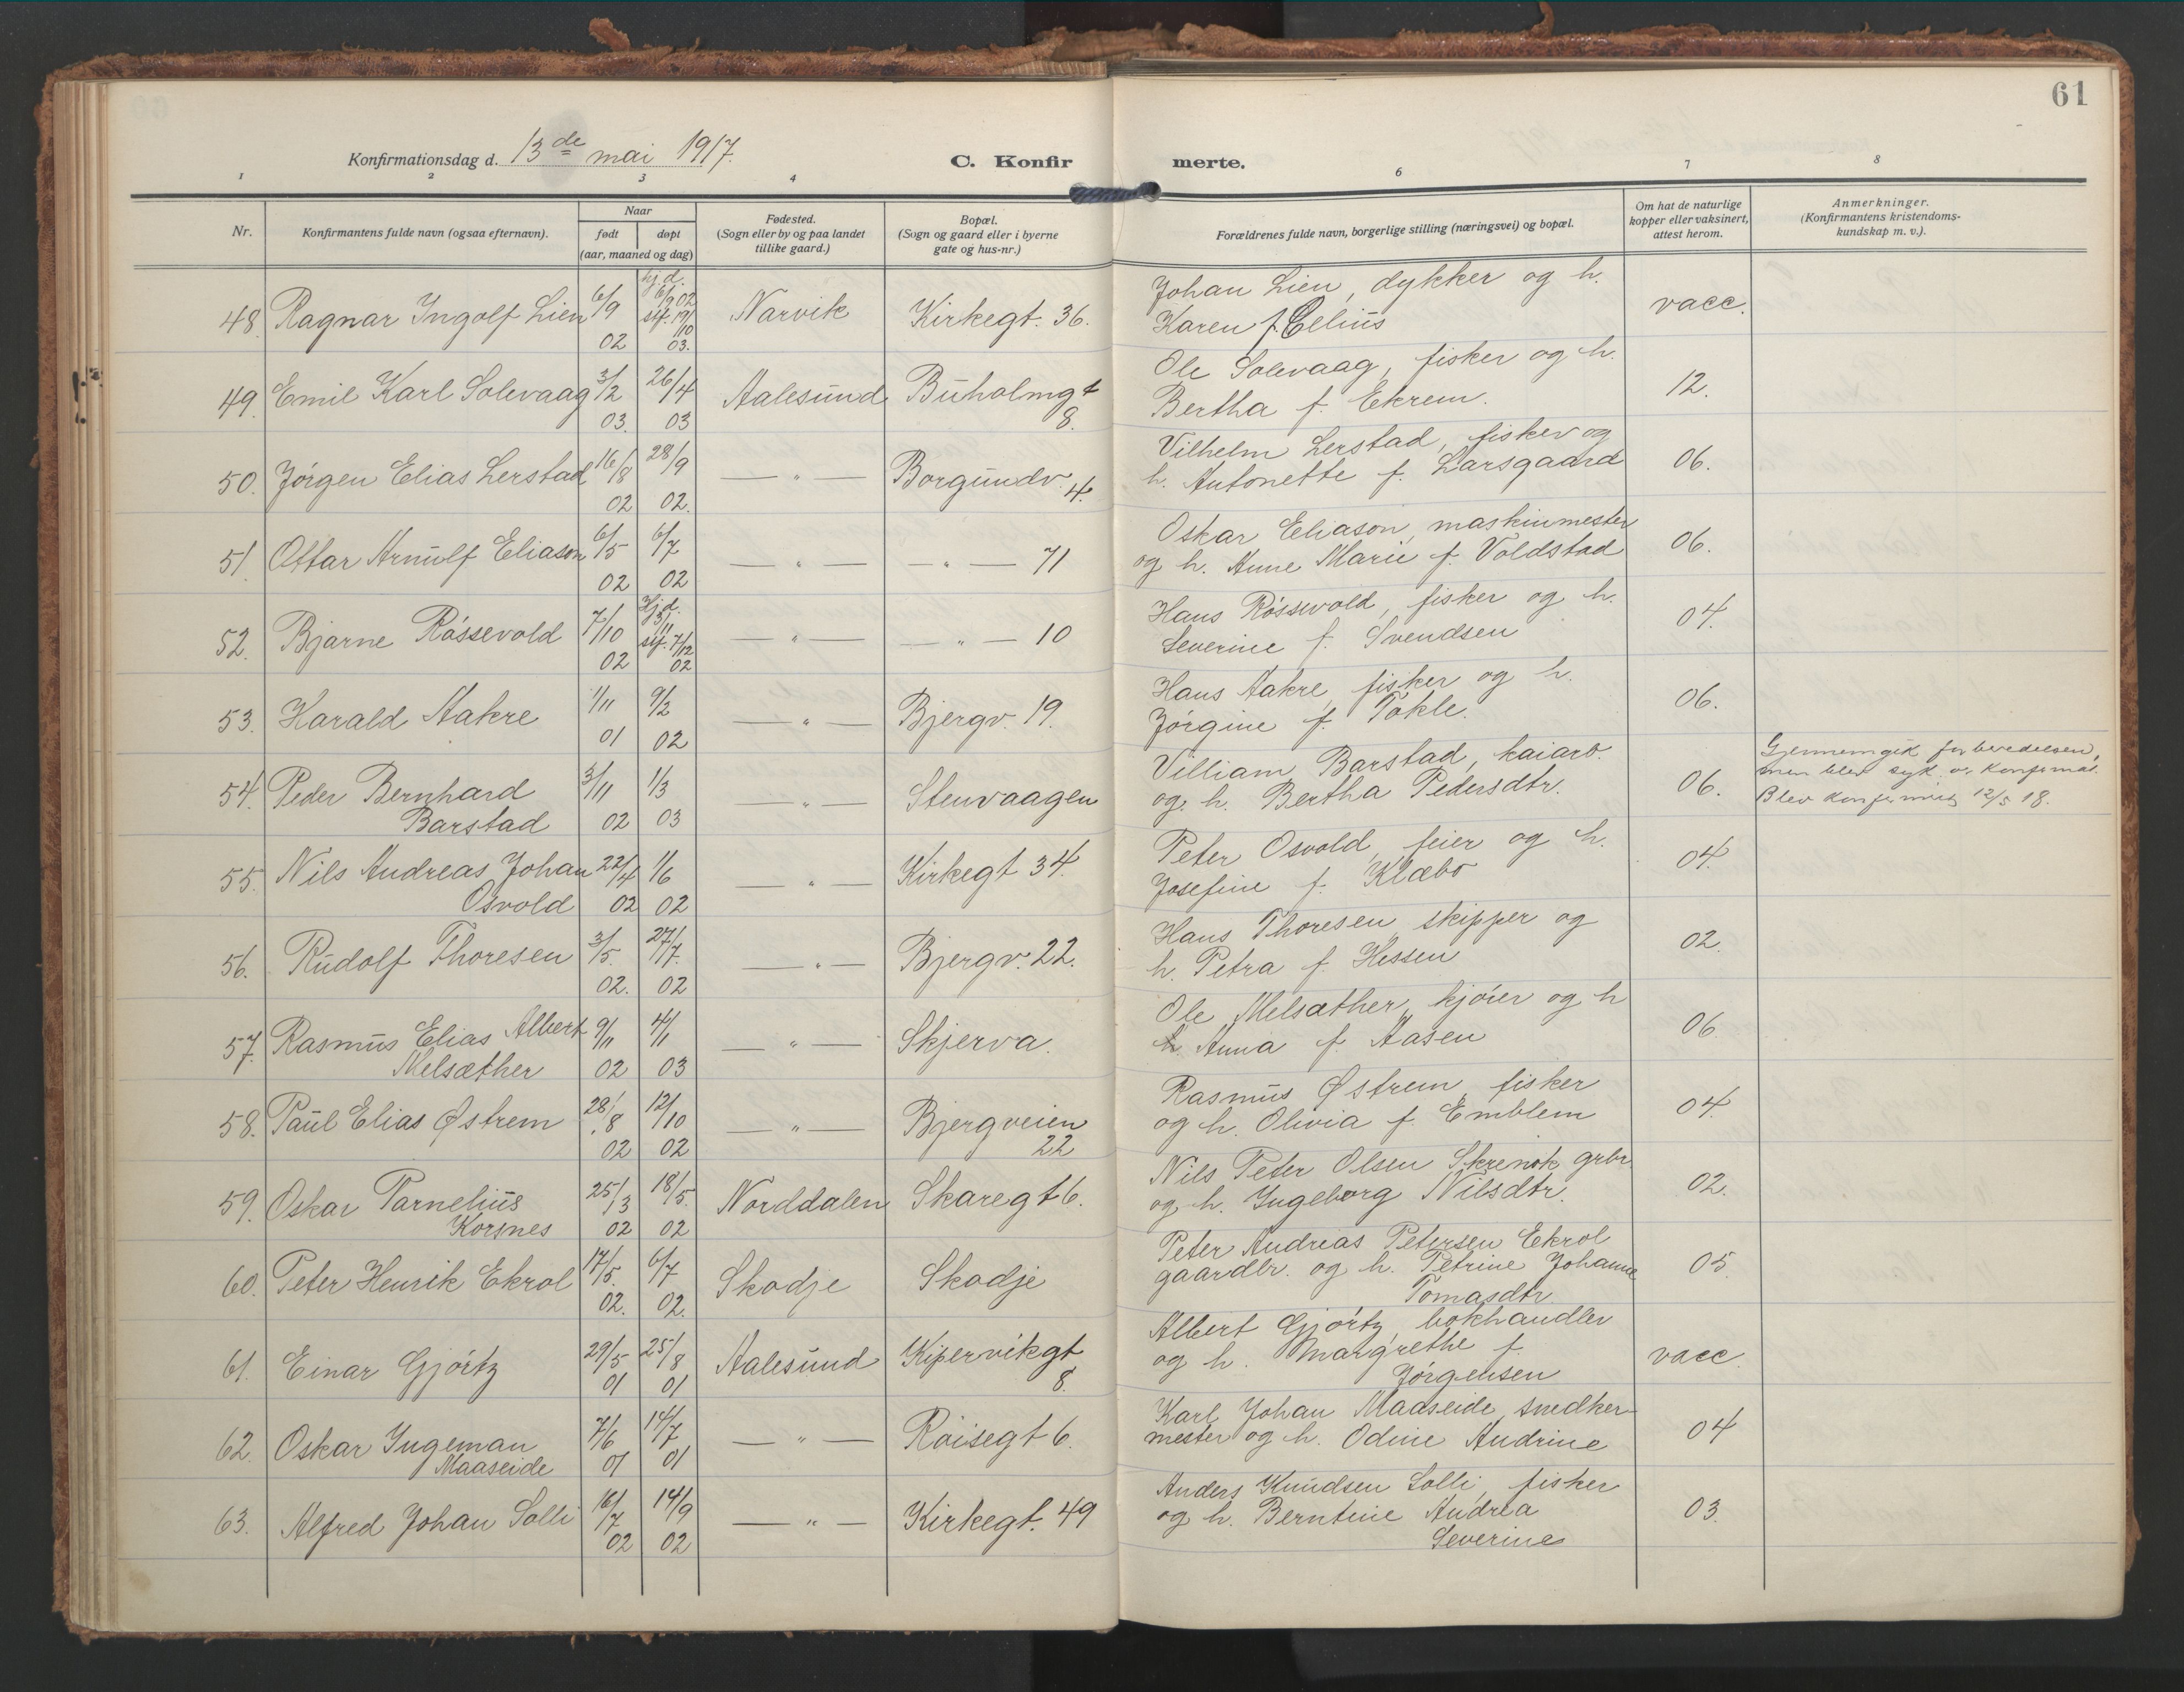 61
Konfirmationsdag d. 13de mai 1917.
C. Konfirmerte.
1 2 3 4 6 7 8
Nr. Konfirmantens fulde navn (ogsaa efternavn). Naar født døpt (aar, maaned og dag) Fødested. (Sogn eller by og paa landet tillike gaard.) Bopæl. (Sogn og gaard eller i byerne gate og hus-nr.) Forældrenes fulde navn, borgerlige stilling (næringsvei) og bopæl. Om hat de naturlige kopper eller vaksinert, attest herom. Anmerkninger. (Konfirmantens kristendoms-kundskap m. v.).
48. Ragnar Ingolf Lien 6/9 02 hj.d. 6/9 02 stf. 19/10 03. Narvik Kirkegt. 36. Johan Lien, dykker og h.
Karen f. Celius vacc.
49. Emil Karl Solevaag 3/2 03. 26/4 03 Aalesund Buholmgt 8. Ole Solevaag, fisker og h.
Bertha f. Ekrem. 12.
50. Jörgen Elias Lerstad 16/8 02 28/9 02. — " — Borgundv. 4. Vilhelm Lerstad, fisker og
h. Antonette f. Larsgaard 06.
51. Ottar Arnulf Eliason 6/5 02 6/7 02 — " — — " — 71 Oskar Eliason, maskinmester
og h. Anne Marie f. Voldstad 06.
52. Bjarne Rössevold 7/10 02 Hj.d. 3/11 stf. 7/12 02 — " — — " — 10 Hans Rössevold, fisker og h.
Severine f. Svendsen 04.
53. Harald Aakre 1/11 01 9/2 02 — " — Bjergv. 19. Hans Aakre, fisker og h.
Jörgine f. Takle. 06.
54. Peder Bernhard
Barstad 3/11 02 1/3 03 — " — Stenvaagen Villiam Barstad, kaiarb.
og h. Bertha Pedersdtr. 06. Gjennemgik forberedelsen,
men blev syk v. konfirmat.
Blev konfirmert 12/5 18.
55. Nils Andreas Johan
Osvold 22/4 02 1/6 02 — " — Kirkegt 34. Peter Osvold, feier og h.
Josefine f. Klæbo 04.
56. Rudolf Thoresen 3/5. 02. 27/7. 02 — " — Bjergv. 22. Hans Thoresen, skipper og
h. Petra f. Hessen 02.
57. Rasmus Elias Albert
Melsæther 9/11 02 4/1 03 — " — Skjerva. Ole Melsæther, kjöier og h
h. Anna f. Aasen 06
58. Paul Elias Østrem 28/8 02 12/10 02 — " — Bjergveien 22 Rasmus Østrem, fisker
og h. Olivia f. Emblem 04.
59. Oskar Parnelius
Korsnes 25/3 02 18/5. 02 Norddalen Skaregt 6. Nils Peter Olsen Skrenok grbr.
og h. Ingeborg Nilsdtr. 02.
60. Peter Henrik Ekrol 17/5. 02. 6/7 02. Skodje Skodje Peter Andreas Petersen Ekrol
gaardbr. og h. Petrine Johanne
Tomasdtr. 05.
61. Einar Gjörtz 29/5 01 25/8 01 Aalesund Kipervikgt 8. Albert Gjörtz, bokhandler
og h. Margrethe f.
Jörgensen vacc.
62. Oskar Ingeman
Maaseide 7/6 01 14/7 01 — " — Röisegt 6. Karl Johan Maaseide, snedker-
mester og h. Odine Andrine 04
63. Alfred Johan Solli 16/7 02 14/9 02 — " — Kirkegt. 49 Anders Knudsen Solli, fisker
og h. Berntine Andrea
Severine 03.